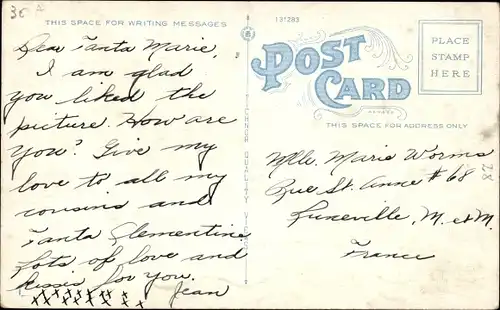 3c
THIS SPACE FOR WRITING MESSAGES
Dear Tanta Marie,
I am glad
you liked the
picture. How are
you? Give my
love to all my
cousins and
Tanta Clementine
Lots of love and
kisses for you.
Jean
xxxxxxxxxx xx
131283
POST CARD
PLACE
STAMP
HERE
THIS SPACE FOR ADDRESS ONLY
Mlle. Marie Worms
Rue St. Anne # 68
Luneville, M. et M.
France